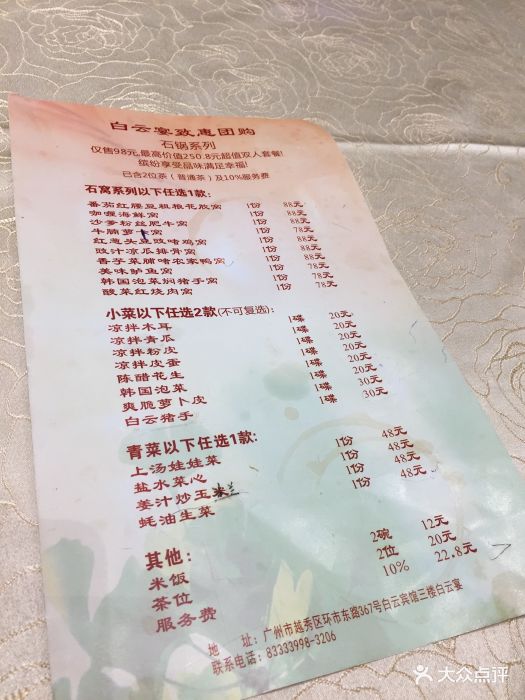 白云宴致惠团购
石锅系列
仅售98元,最高价值250.8元超值双人套餐!
缤纷享受品味满足幸福!
已含2位茶（普通茶）及10%服务费
石窝系列以下任选1款:
番茄红腰豆粗粮花胶窝 1份 88元
咖喱海鲜窝 1份 88元
沙爹粉丝肥牛窝 1份 88元
牛腩萝卜窝 1份 78元
红葱头豆豉啫鸡窝 1份 88元
豉汁凉瓜排骨窝 1份 78元
香芋菜脯啫农家鸭窝 1份 78元
美味鲈鱼窝 1份 88元
韩国泡菜焖猪手窝 1份 78元
酸菜红烧肉窝 1份 78元
小菜以下任选2款(不可复选):
凉拌木耳 1碟 20元
凉拌青瓜 1碟 20元
凉拌粉皮 1碟 20元
凉拌皮蛋 1碟 20元
陈醋花生 1碟 20元
韩国泡菜 1碟 30元
爽脆萝卜皮 1碟 30元
白云猪手
青菜以下任选1款:
上汤娃娃菜 1份 48元
盐水菜心 1份 48元
姜汁炒玉兰 1份 48元
蚝油生菜 48元
其他:
米饭 2碗 12元
茶位 2位 20元
服务费 10% 22.8元
地 址:广州市越秀区环市东路367号白云宾馆三楼白云宴
联系电话:83333998-3206
大众点评